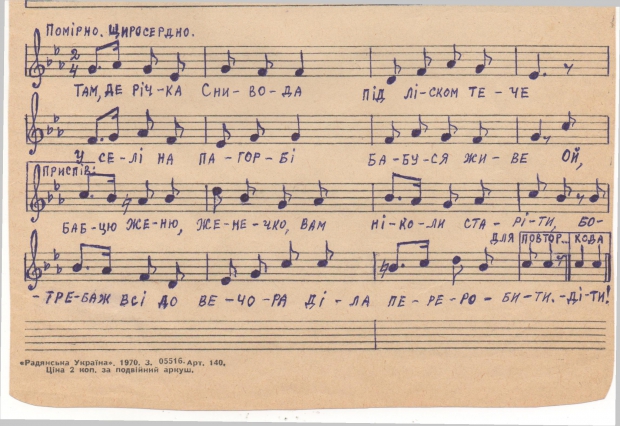 Помірно. Щиросердно.
2
4
ТАМ, ДЕ РІЧ-КА СНИ-ВО-ДА ПІД ЛІ-СКОМ ТЕ-ЧЕ
У СЕ-ЛІ НА ПА-ГОР-БІ БА-БУ-СЯ ЖИ-ВЕ ОЙ,
ПРИСПІВ:
БАБ-ЦЮ ЖЕ-НЮ, ЖЕ-НЕ-ЧКО, ВАМ НІ-КО-ЛИ СТА-РІ-ТИ, БО-
ДЛЯ ПОВТОР... КОДА
-ТРЕ-БАЖ ВСІ ДО ВЕ-ЧО-РА ДІ-ЛА ПЕ-РЕ-РО-БИ-ТИ.-ДІ-ТИ!
«Радянська Україна», 1970, З. 05516-Арт. 140.
Ціна 2 коп. за подвійний аркуш.